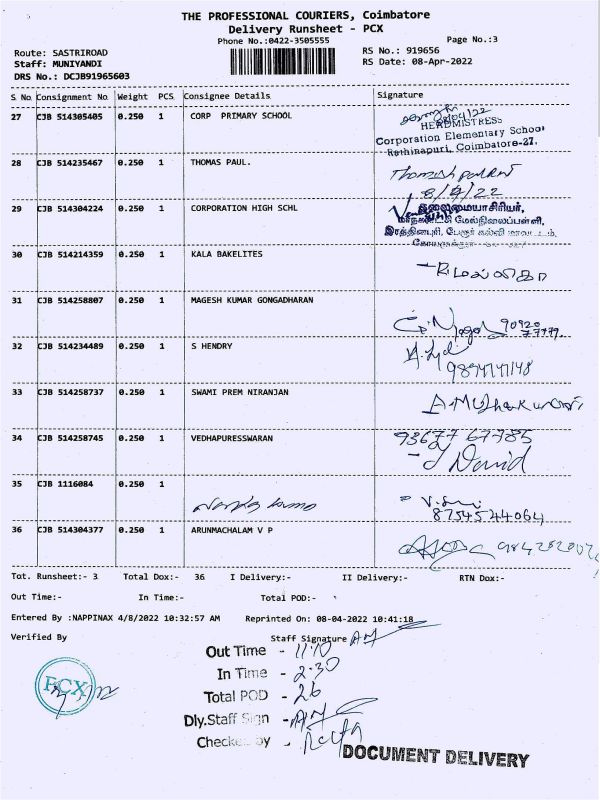 THE PROFESSIONAL COURIERS, Coimbatore
Delivery Runsheet - PCX
Phone No.:0422-3505555
Page No.:3
Route: SASTRIROAD
RS No.: 919656
Staff: MUNIYANDI
RS Date: 08-Apr-2022
DRS No.: DCJB91965603
S No Consignment No Weight PCS Consignee Details Signature
27 CJB 514305405 0.250 1 CORP PRIMARY SCHOOL
HEADMISTRESS
Corporation Elementary School
Rathinapuri, Coimbatore-27.
28 CJB 514235467 0.250 1 THOMAS PAUL.
8/4/22
29 CJB 514304224 0.250 1 CORPORATION HIGH SCHL
தலைமையாசிரியர்,
மாநகராட்சி மேல்நிலைப்பள்ளி,
இரத்தினபுரி, பேரூர் கல்வி மாவட்டம்,
30 CJB 514214359 0.250 1 KALA BAKELITES
31 CJB 514258807 0.250 1 MAGESH KUMAR GONGADHARAN
90920
77779
32 CJB 514234489 0.250 1 S HENDRY
33 CJB 514258737 0.250 1 SWAMI PREM NIRANJAN
34 CJB 514258745 0.250 1 VEDHAPURESSWARAN
93677 67785
David
35 CJB 1116084 0.250 1
8754544064
36 CJB 514304377 0.250 1 ARUNMACHALAM V P
Tot. Runsheet:- 3 Total Dox:- 36 I Delivery:- II Delivery:- RTN Dox:-
Out Time:- In Time:- Total POD:-
Entered By :NAPPINAX 4/8/2022 10:32:57 AM Reprinted On: 08-04-2022 10:41:18
Verified By Staff Signature
Out Time - 11:10
In Time - 2:30
Total POD - 26
Dly.Staff Sign -
Checked by -
PCX
DOCUMENT DELIVERY